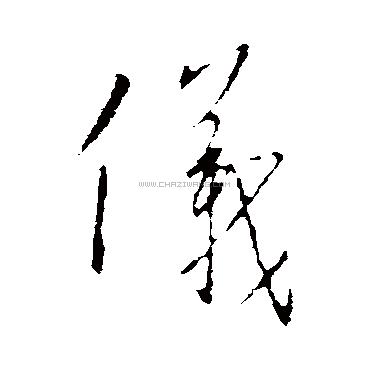 儀
WWW.CHAZIWANG.COM